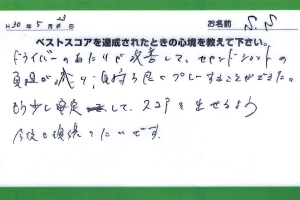 H30年5月23日 お名前 S.S
ベストスコアを達成されたときの心境を教えて下さい。
ドライバーのあたりが改善して、セカンドショットの
負担が減り、気持ち良くプレーすることができた。
もう少し安定して、スコアを出せるよう
今後も頑張りたいです。